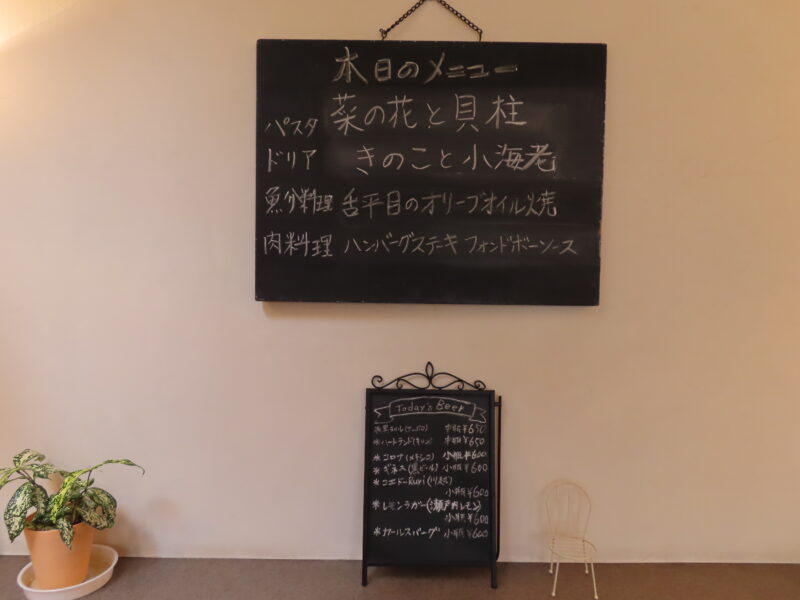 本日のメニュー
パスタ 菜の花と貝柱
ドリア きのこと小海老
魚料理 舌平目のオリーブオイル焼
肉料理 ハンバーグステーキ フォンドボーソース
Today's Beer
中瓶¥650
*ハートランド(キリン) 中瓶¥650
*コロナ(メキシコ) 小瓶¥600
*ギネス(黒ビール) 小瓶¥600
*コエドーRuri(川越)
小瓶¥600
*レモンラガー(瀬戸内レモン)
小瓶¥600
*カールスバーグ 小瓶¥600